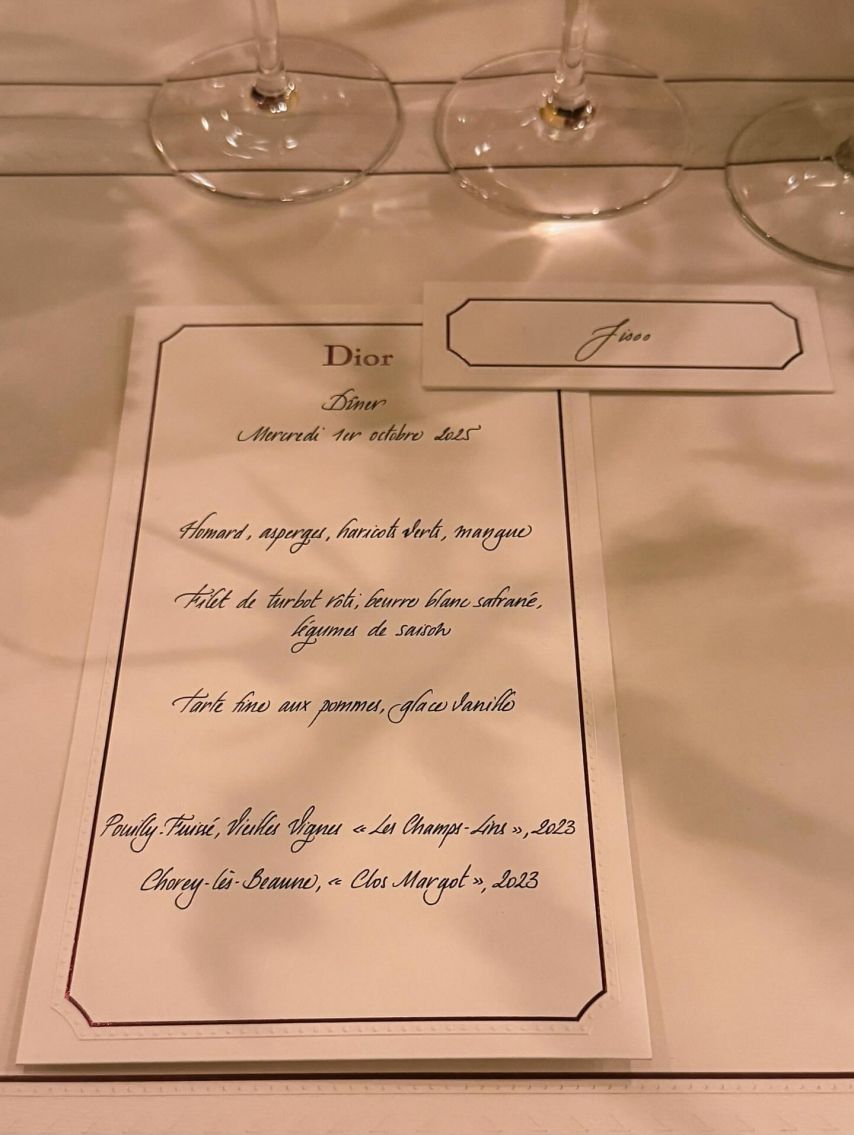 Dior
Jisoo
Dîner
Mercredi 1er octobre 2025
Homard, asperges, haricots verts, mangue
Filet de turbot rôti, beurre blanc safrané,
légumes de saison
Tarte fine aux pommes, glace vanille
Pouilly-Fuissé, Vieilles Vignes « Les Champs-Lins », 2023
Chorey-lès-Beaune, « Clos Margot », 2023